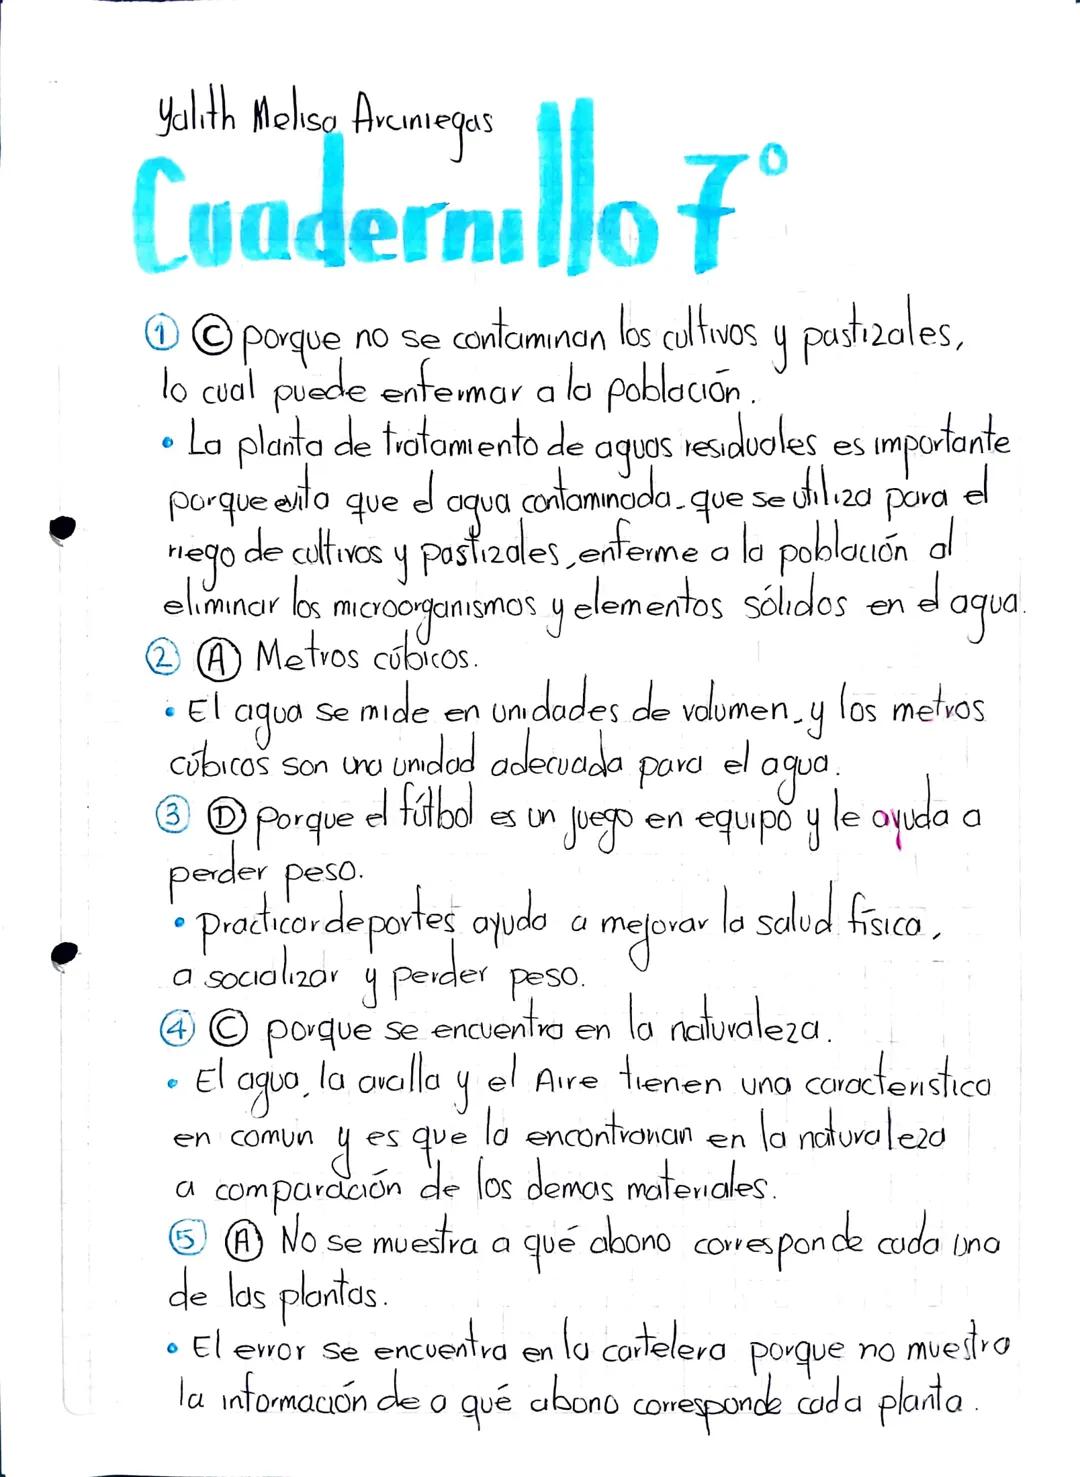 Yalith Melisa Arciniegas
Cuadernillo 7°
① Ⓒ porque no se contaminan los cultivos y pastizales,
lo cual puede enfermar a la población.
• La planta de tratamiento de aguas residuales es importante
porque evita que el agua contaminada que se utiliza para el
riego de cultivos y pastizales, enferme a la población al
eliminar los microorganismos y elementos sólidos en el agua.
② Ⓐ Metros cúbicos.
• El agua se mide en unidades de volumen y los metros
cúbicos son una unidad adecuada para el agua.
③ Ⓓ porque el fútbol es un juego en equipo y le ayuda a
perder peso.
• practicar deportes ayuda a mejorar la salud física,
a socializar y perder peso.
④ Ⓒ porque se encuentra en la naturaleza.
• El agua, la arcilla y el Aire tienen una caracteristica
en comun y es que la encontraran en la naturaleza
a comparación de los demas materiales.
⑤ Ⓐ No se muestra a qué abono corresponde cada una
de las plantas.
• El error se encuentra en la cartelera porque no muestra
la información de a qué abono corresponde cada planta.